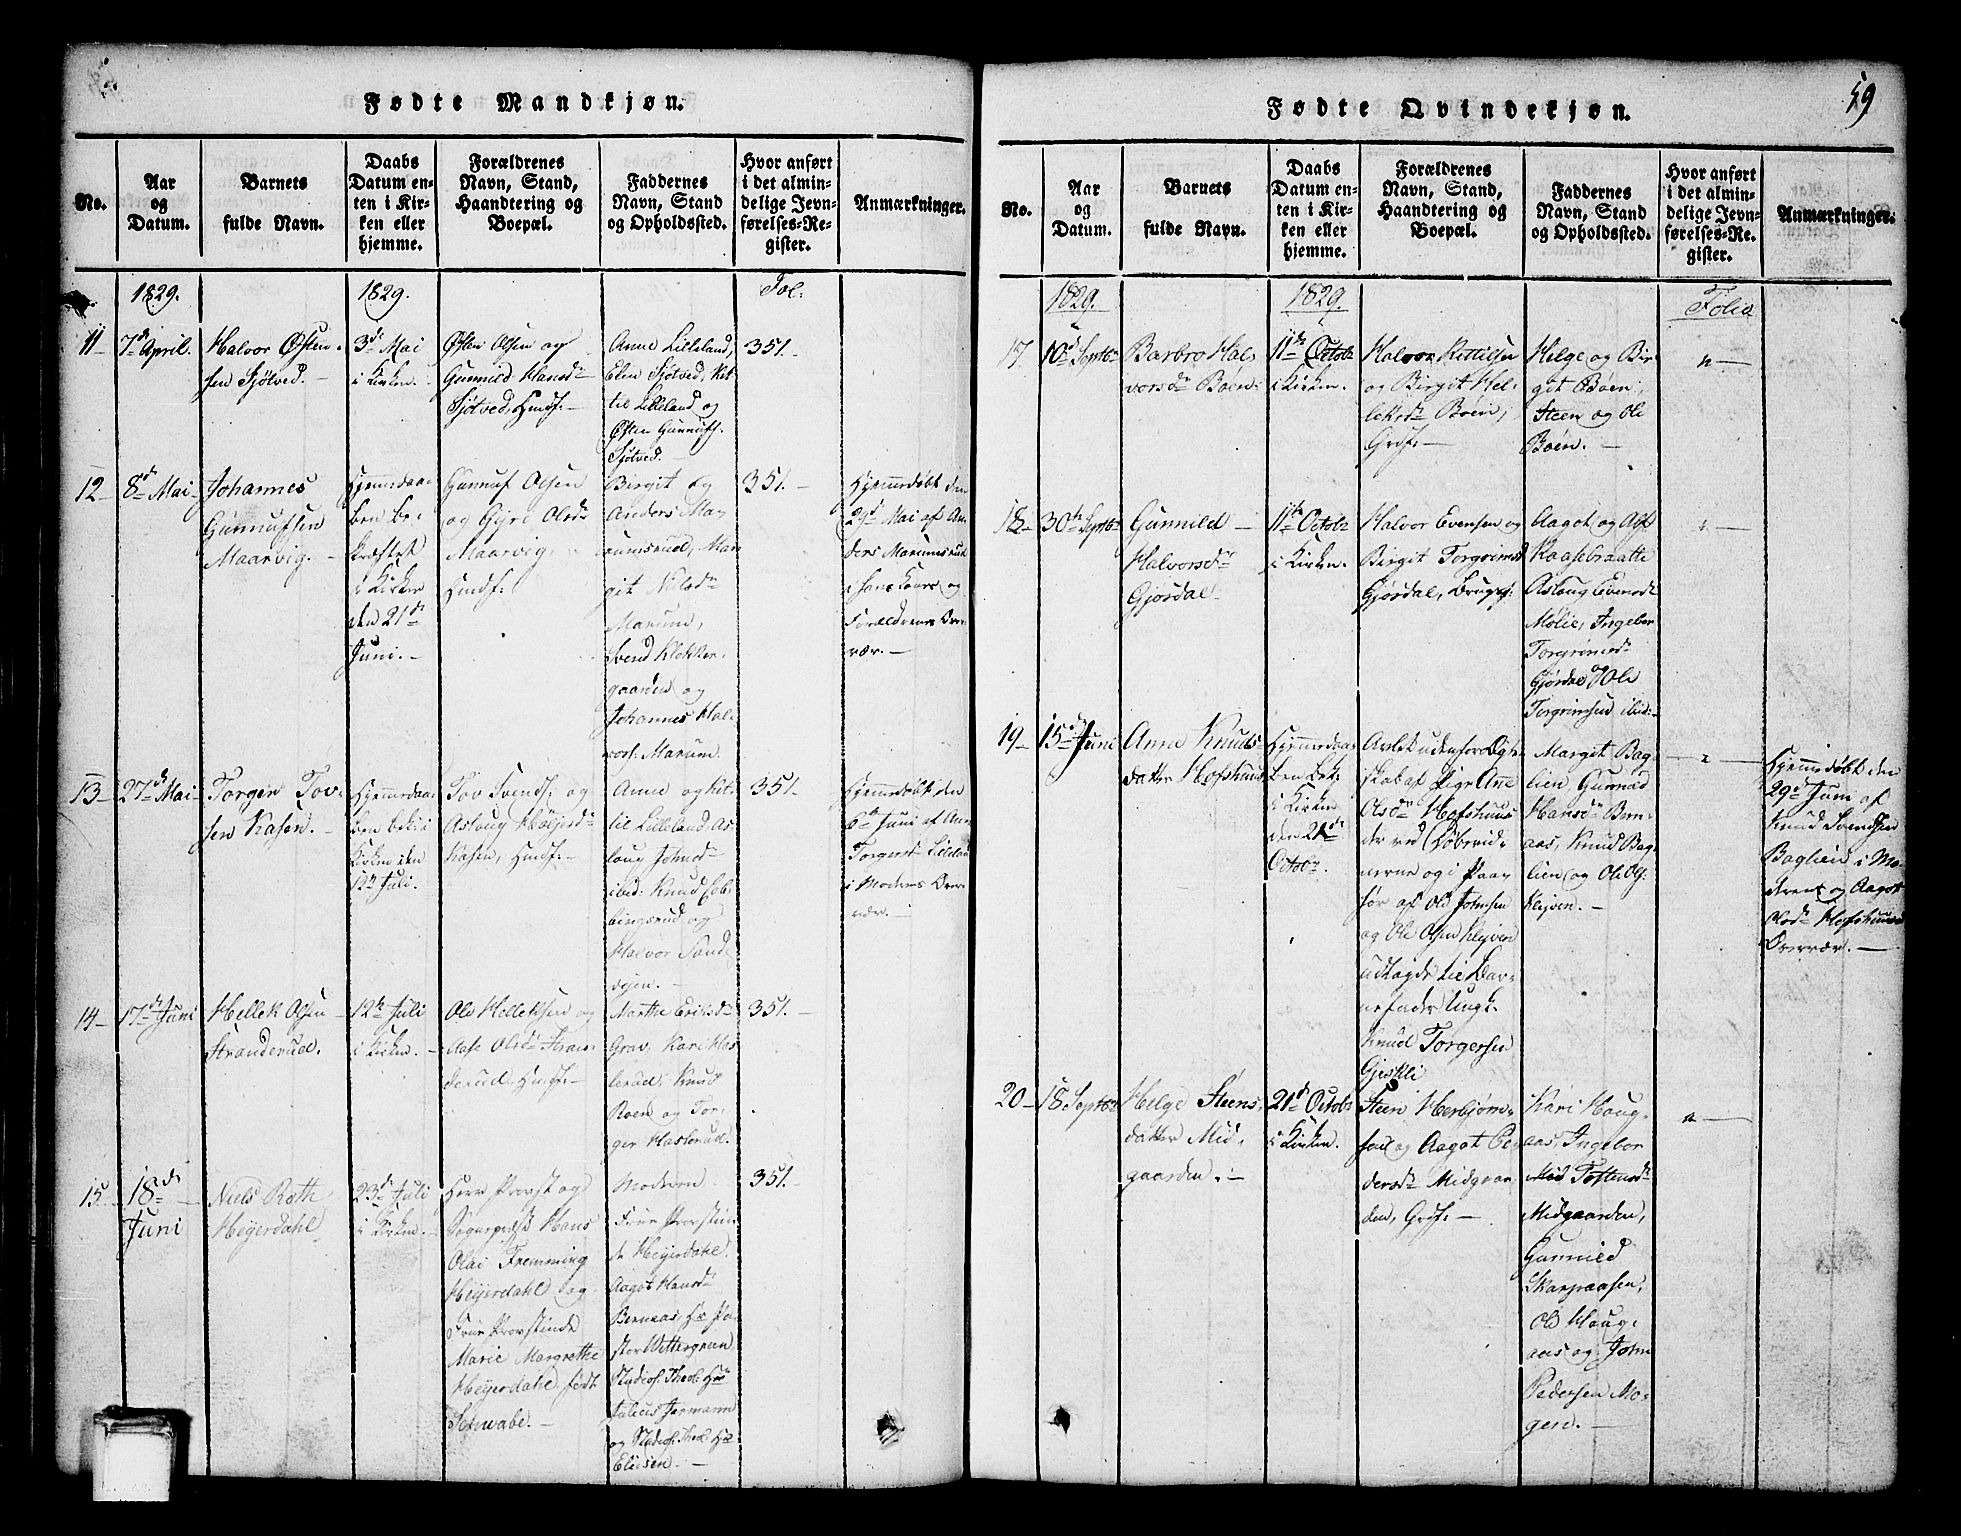 Fødte Mandkjøn.
No.
Aar
og
Datum.
Barnets
fulde Navn.
Daabs
Datum en-
ten i Kir-
ken eller
hjemme.
Forældrenes
Navn, Stand,
Haandtering og
Boepæl.
Faddernes
Navn, Stand
og Opholdssted.
Hvor anført
i det almin-
delige Jevn-
førelses-Re-
gister.
Anmærkninger.
1829.
1829.
Fol:
11
7de April.
Halvor Østen-
sen Sjøtved.
3de Mai
i Kirken.
Østen Olsen og
Gunnild Hansdr
Sjøtved, Huusf:
Anne Lilleland,
Elen Sjøtved, Kit-
til Lilleland og
Østen Gunnufs.
Sjøtved.
351.
12
8de Mai
Johannes
Gunnufsen
Maarvig.
Hjemmedaa-
ben be-
kræftet
i Kirken
den 21de
Juni.
Gunnuf Olsen
og Gyri Olsdr
Maarvig,
Huusf:
Birgit og
Anders Ma-
rumsrud, Mar-
git Nilsdr
Marum,
Svend Klokker-
gaarden og
Johannes Hal-
vors. Marum.
351.
Hjemmedøbt den
21de Mai af An-
ders Marumsrud
i hans Huus og
Forældrenes Over-
vær.
13
27de Mai
Torgen Tov-
sen Kasen.
Hjemmedaa-
ben bek: i
Kirken den
12te Juli.
Tov Svends: og
Aslaug Høljersdr
Kasen, Huusf:
Anne og Kit-
til Lilleland, As-
laug Johnsdr
ibid: Knud Gob-
bingsrud og
Halvor Sand-
viien.
351.
Hjemmedøbt den
6te Juni af Anne
Torgersdr Lilleland
i Moderens Over-
vær.
14
17de Juni
Hellek Olsen
Stranderud.
12te Juli
i Kirken.
Ole Helleksen og
Aase Olsdr Stran-
derud. Huusf:
Marthe Eriksdr
Grav, Kari Has-
lerud. Knud
Roen og Tor-
ger Haslerud.
351.
15
18de
Juni
Niels Roth
Heyerdahl
23de Juli
i Kirken.
Herr Provst og
Sognepræst Hans
Olai Fremming
Heyerdahl og
Frue Provstinde
Marie Margrethe
Heyerdahl født
Schwabe.
Moderen
Frue Provstin-
de Heyerdahl.
Aagot Hansdr
Bernaas, Hr Pa-
stor Wittergreen
Studios: Theol: Hr
Julius Jarmann
og Studios: Theol Hr
Eliesen.
351.
Fødte Qvindekjøn.
59
No.
Aar
og
Datum.
Barnets
fulde Navn.
Daabs
Datum en-
ten i Kir-
ken eller
hjemme.
Forældrenes
Navn, Stand,
Haandtering og
Boepæl.
Faddernes
Navn, Stand
og Opholdssted.
Hvor anført
i det almin-
delige Jevn-
førelses-Re-
gister.
Anmærkninger.
1829.
1829.
Folio
17
10de Septbr
Barbro Hal-
vorsdr Bøen.
11te Octobr
i Kirken.
Halvor Kittilsen
og Birgit Hel-
leksdr Bøen,
Grdf:
Helge og Bir-
git Bøen.
Steen og Ole
Bøen.
"
18
30te Septbr
Gunnild
Halvorsdr
Gjørdal.
11te Octobr
i Kirken.
Halvor Evensen og
Birgit Torgrimsdr
Gjørdal, Brugsf:
Aagot og Alf
Kaasebraatte
Aslaug Evensdr
Mølie, Ingebor
Torgrimsdr
Gjørdal og Ole
Torgrimsen ibid:
"
19
15de Juni
Anna Knuds-
datter Hofshuus.
Hjemmedaa-
ben bek:
i Kirken
den 21de
Octobr.
Avlet udenfor Ægte-
skab af Pige Ane
Olsdr Hofshuus
der ved Løbevid-
nerne og i Paa-
hør af Ole Johnsen
og Ole Olsen Klejven
udlagde til Bar-
nefader Ungk:
Knud Torgersen
Gjeskli
Margit Bag-
lien Gunnild
Hansdr Bern-
aas, Knud Bag-
lien og Ole Ols:
Klejven.
"
Hjemmedøbt den
29de Juni af
Knud Svendsen
Baglien i Mo-
deren og Aagot
Olsdr Hofshuus
Overvær.
20
18 Septbr
Helge Steens-
datter Mid-
gaarden.
21de Octobr
i Kirken.
Steen Herbjørn-
sen og Aagot Pe-
dersdr Midgaar-
den, Grdf:
Kari Haug-
aas, Ingebor
Mid Tostensdr
Midgaarden,
Gunnild
Skarpaasen,
Ole Haug-
aas og John
Pedersen Mo-
gen.
"